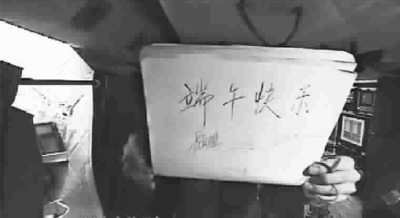 端午快乐